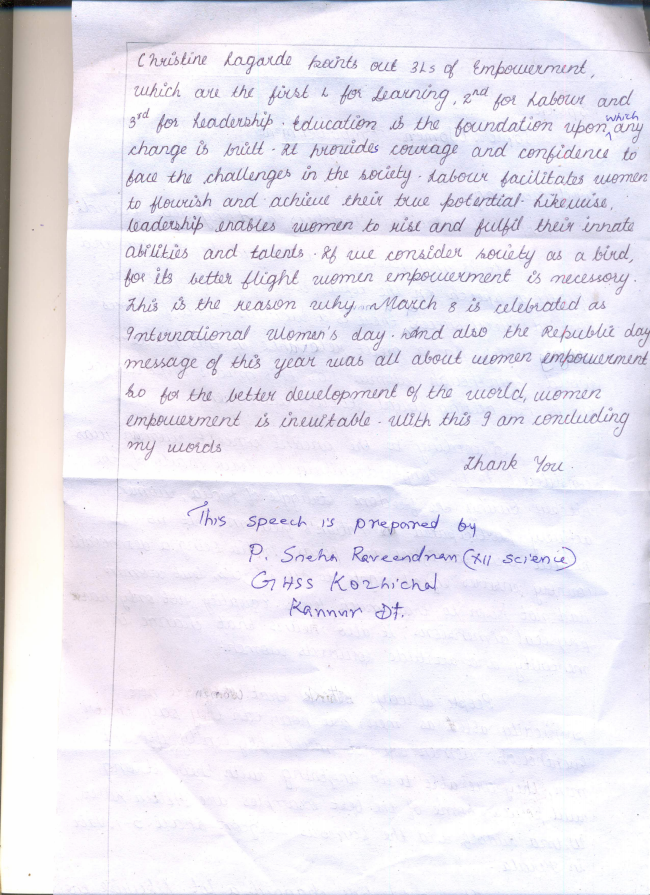 Christine Lagarde points out 3Ls of Empowerment,
which are the first L for Learning, 2nd for Labour and
3rd for Leadership. Education is the foundation upon which any
change is built. It provides courage and confidence to
face the challenges in the society. Labour facilitates women
to flourish and achieve their true potential. Likewise,
leadership enables women to rise and fulfil their innate
abilities and talents. If we consider society as a bird,
for its better flight women empowerment is necessary.
This is the reason why March 8 is celebrated as
International Women's day. And also the Republic day
message of this year was all about women empowerment
So for the better development of the world, women
empowerment is inevitable. With this I am concluding
my words
Thank You.
This speech is prepared by
P. Sneha Raveendran (XII science)
GHSS Kozhichal
Kannur Dt.